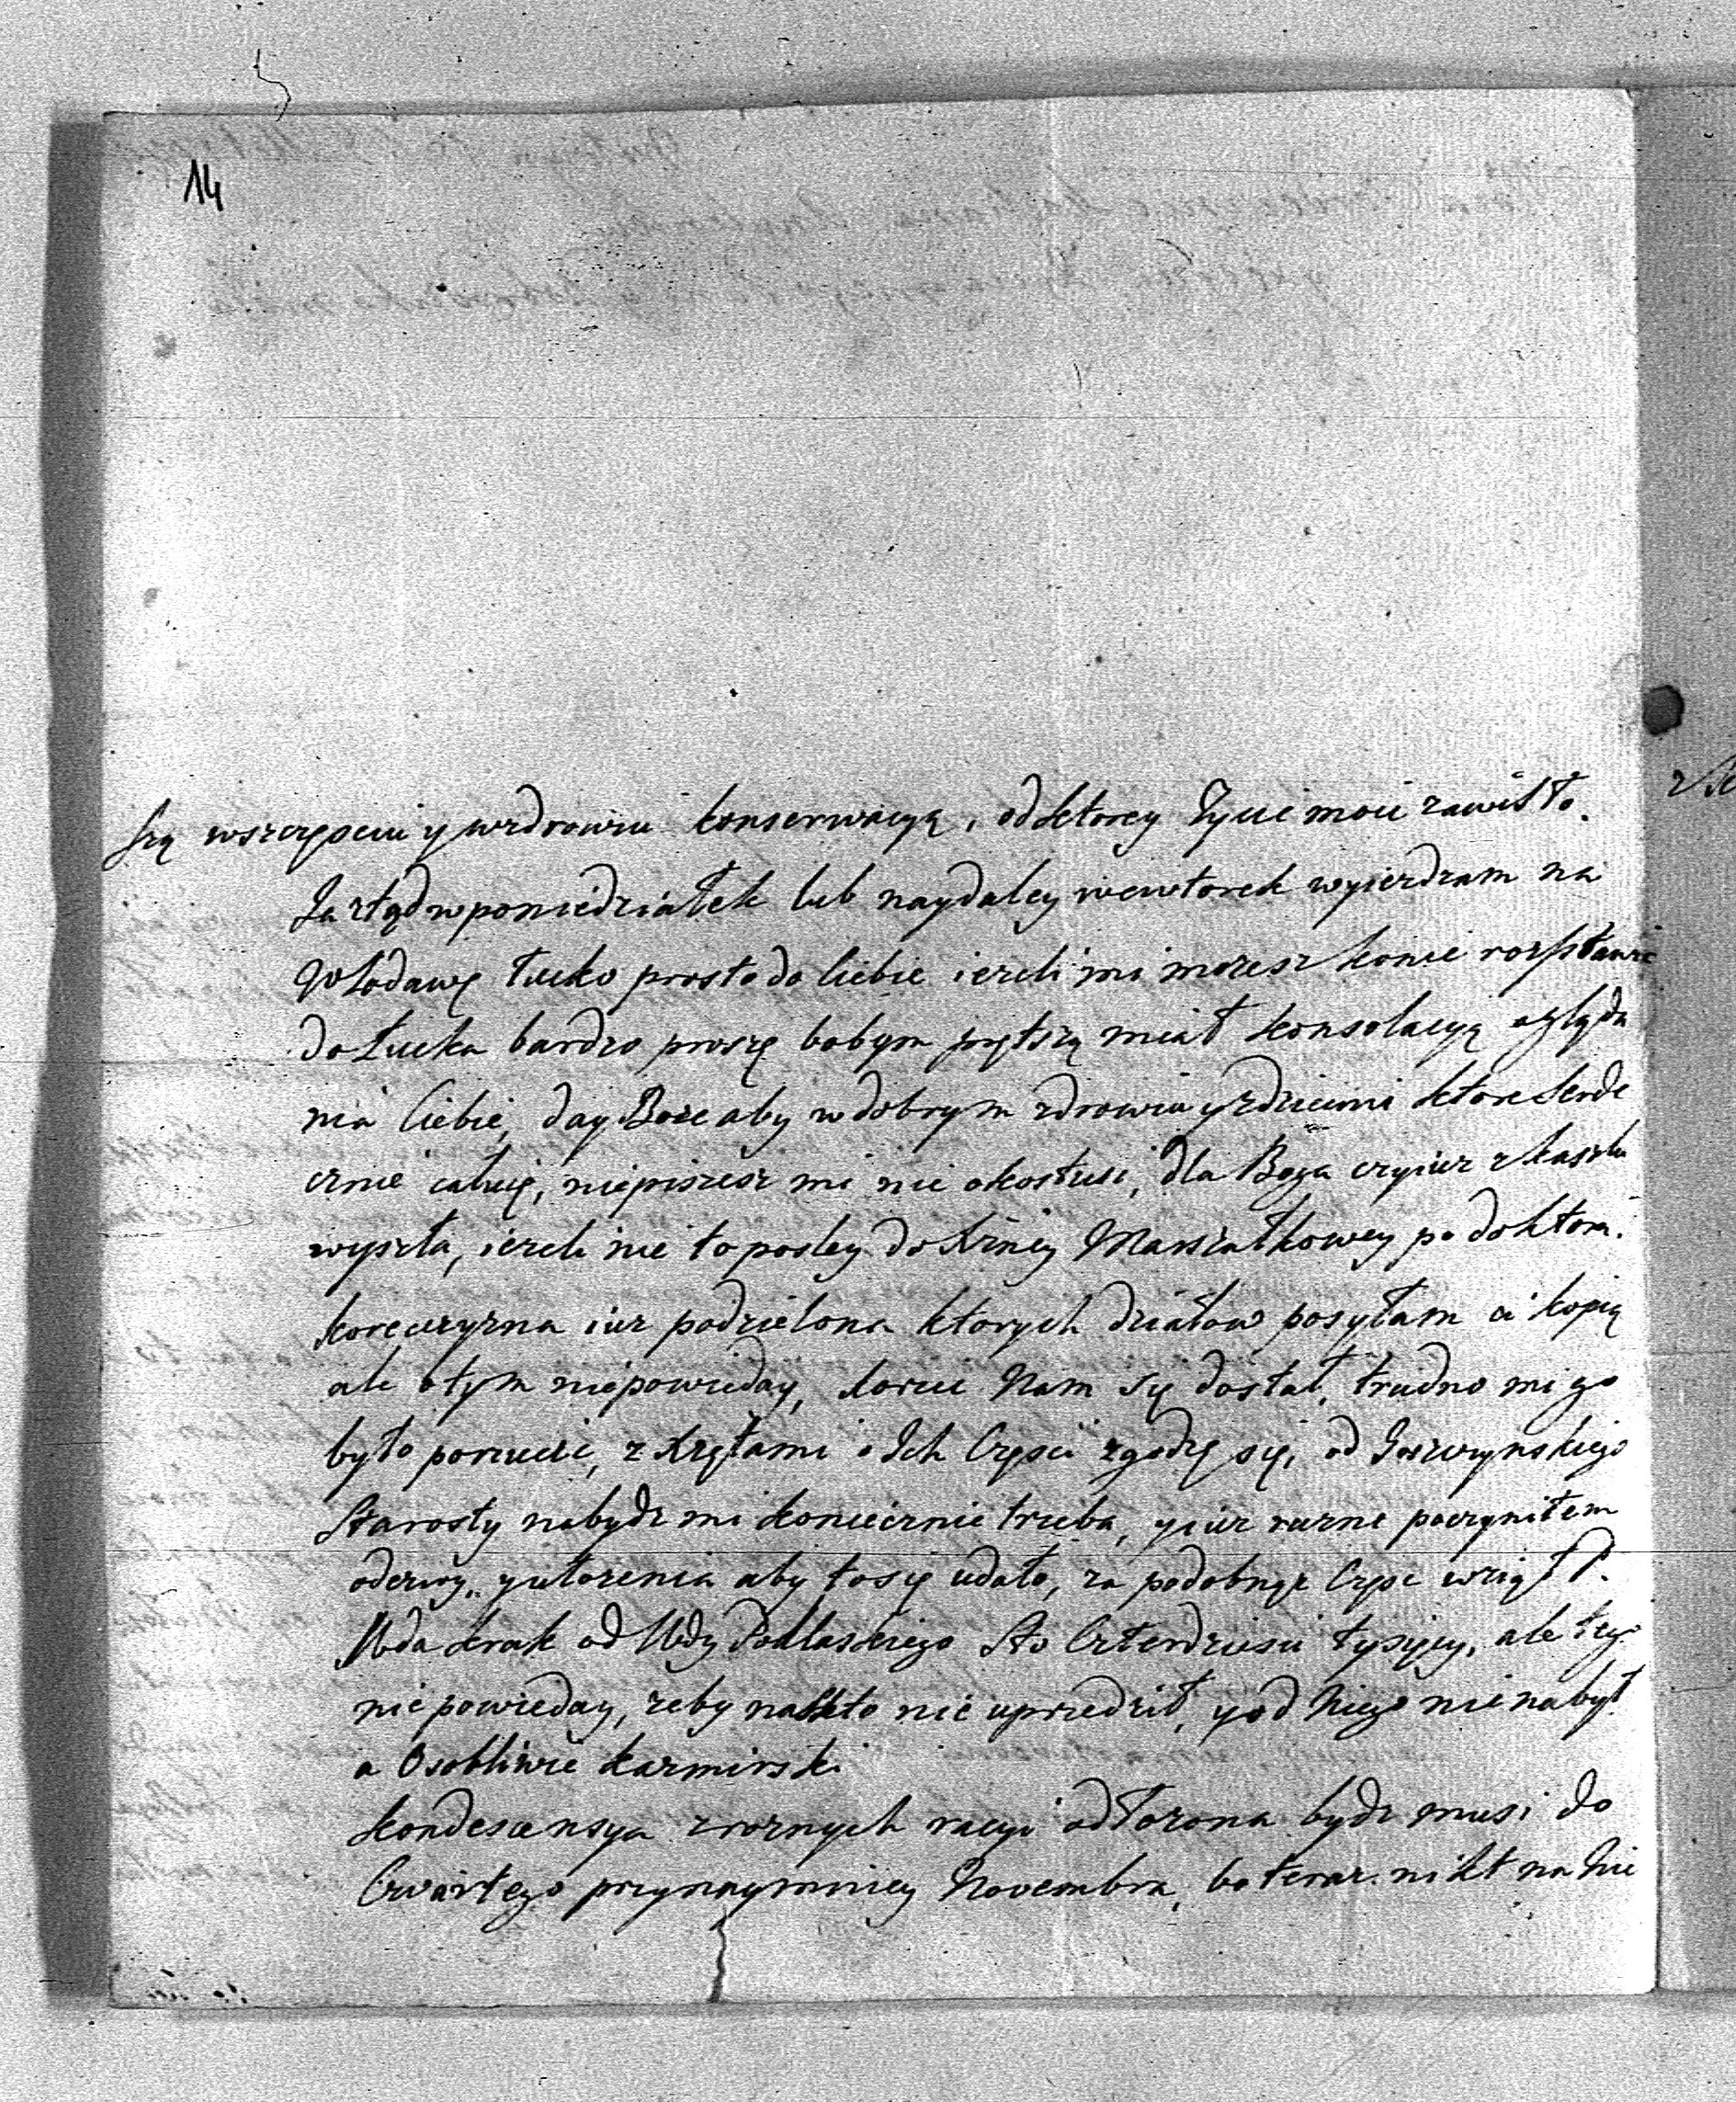 14
szą wszczęsciu y wzdrowiu konserwacyą, od ktorey Zycie moie zawisło.
Ja ztąd w poniedziałek lub naydaley wewtorek wyierdzam na
Włodawę Łucko prosto do Ciebie iezeli mi mozesz konie rozstawic
do Łucka bardzo proszę bobym prętszą miał konsolacyą ogląda
nia Ciebie, day Boze aby w dobrym zdrowiu y zdziecmi ktore Serde
cznie całuię, niepiszesz mi nic o kostusi, dla Boga czyiuz z kaszlu
wyszła, iezeli nie to posley do Xzney Marszałkowey po doktora.
Korecczyzna iuz podzielona ktorych działow posyłam ci kopią
ale o tym niepowieday, Korzec Nam się dostał, trudno mi go
było porzucic, z Xzętami o Ich Częsci zgodzę się, od
Starosty nabydz mi koniecznie trzeba, y iuz rozne poczyniłem
y ułozenia aby to się udało, za podobnąz Częsc wziął P.
Wda Krak od Wdy Podlaskiego Sto Czterdziesci tysięcy, ale tego
nie powieday, zeby nas kto nie uprzedził, y od Niego nie nabył
a Osobliwie Kazmirski
Kondescensya zroznych racyi odłozona bydz musi do
Czwartego przynaymniey Novembra, bo teraz nikt na Nie